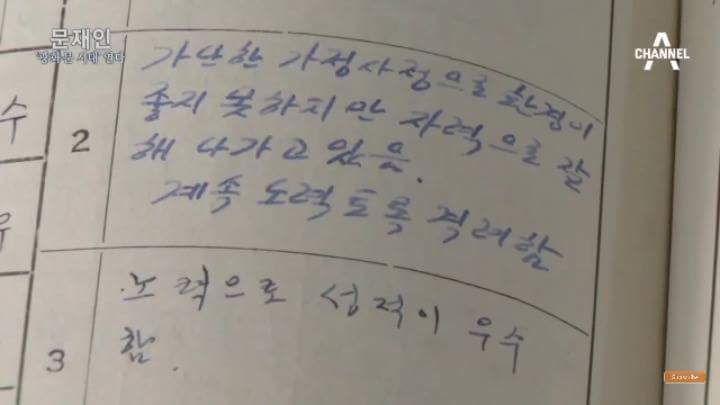 문재인
'광화문 시대' 연다
CHANNEL A
수
2
가난한 가정사정으로 환경이
좋지 못하지만 자력으로 잘
해 나가고 있음.
계속 노력토록 격려함
우
3
노력으로 성적이 우수
함.
Subscribe